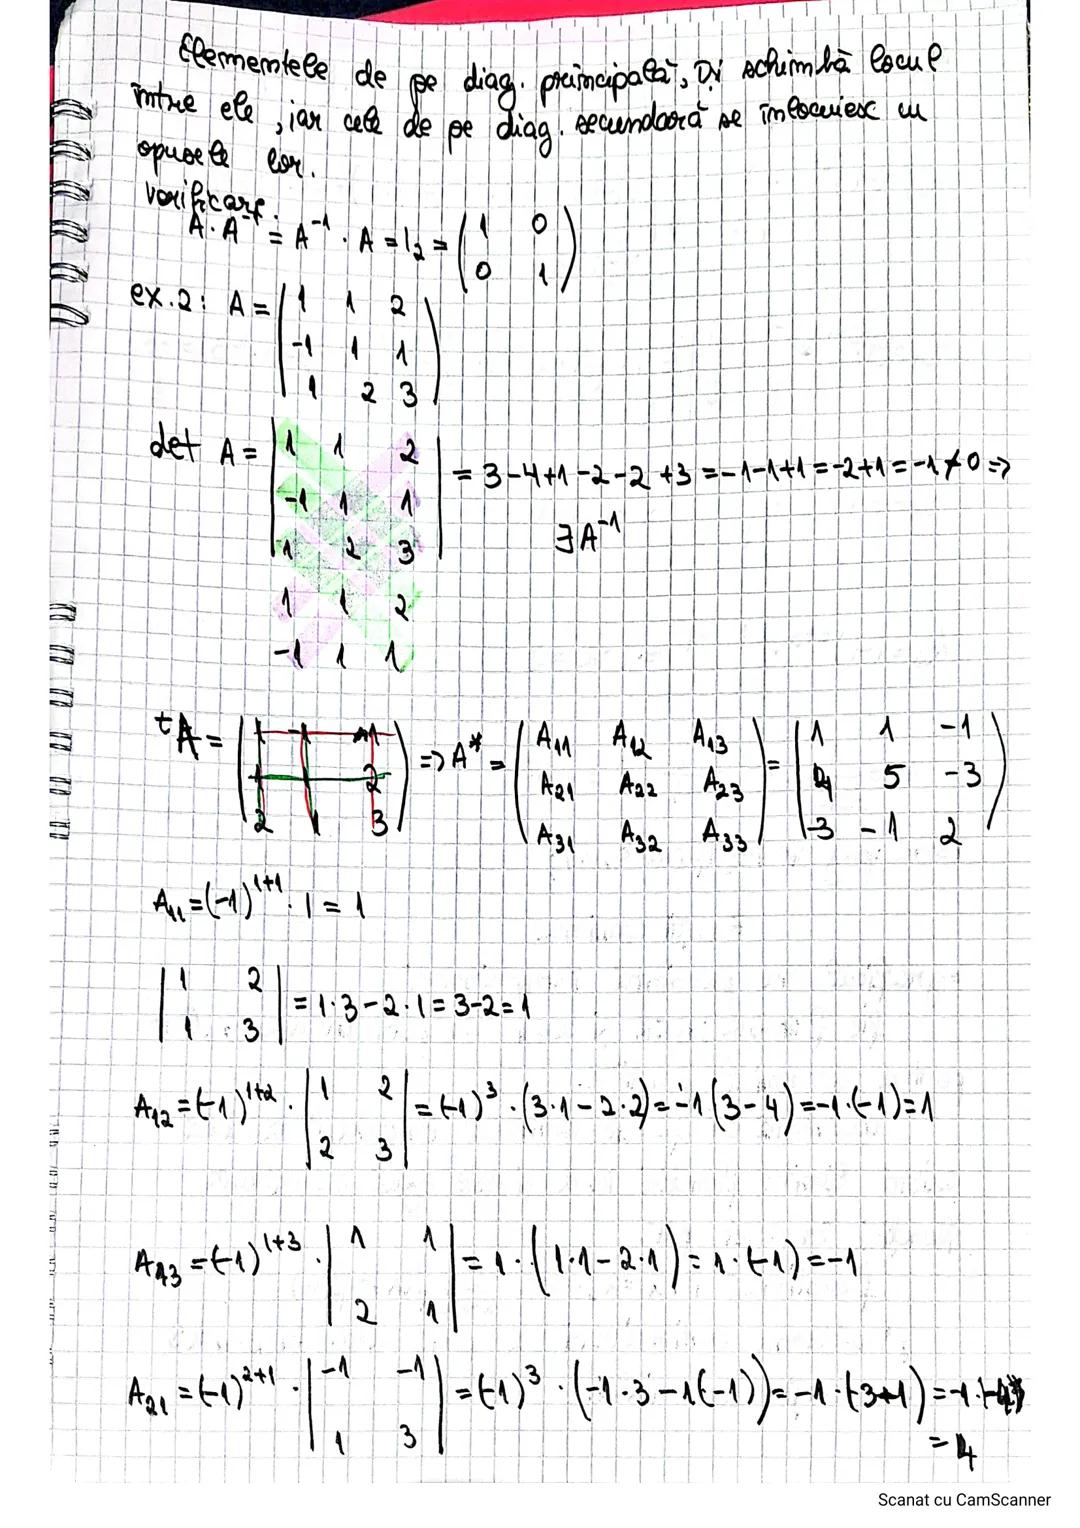 Elementele de pe diag. principală, își schimbă locul
între ele, iar cele de pe diag. secundară se înlocuiesc cu
opusele lor.
verificare:
A · A⁻¹ = A⁻¹ · A = I₂ = (1 0
0 1)
ex.2: A = (1 1 2
-1 1 1
1 2 3)
det A = |1 1 2
-1 1 1
1 2 3| = 3-4+1-2-2+3 = -1-1+1 = -2+1 = -1 ≠ 0 =>
∃A⁻¹
1 1 2
-1 1 1
ᵗA = (1 -1 1
1 1 2
2 1 3) => A* = (A₁₁ A₁₂ A₁₃
A₂₁ A₂₂ A₂₃
A₃₁ A₃₂ A₃₃) = (1 1 -1
4 5 -3
-3 -1 2)
A₁₁ = (-1)¹⁺¹ · 1 = 1
|1 2
1 3| = 1·3-2·1 = 3-2 = 1
A₁₂ = (-1)¹⁺² · |1 2
2 3| = (-1)³ · (3·1-2·2) = -1(3-4) = -1·(-1) = 1
A₁₃ = (-1)¹⁺³ · |1 1
2 1| = 1 · (1·1-2·1) = 1·(-1) = -1
A₂₁ = (-1)²⁺¹ · |-1 -1
1 3| = (-1)³ · (-1·3-1(-1)) = -1·(-3+1) = -1·(-4)
= 4
Scanat cu CamScanner